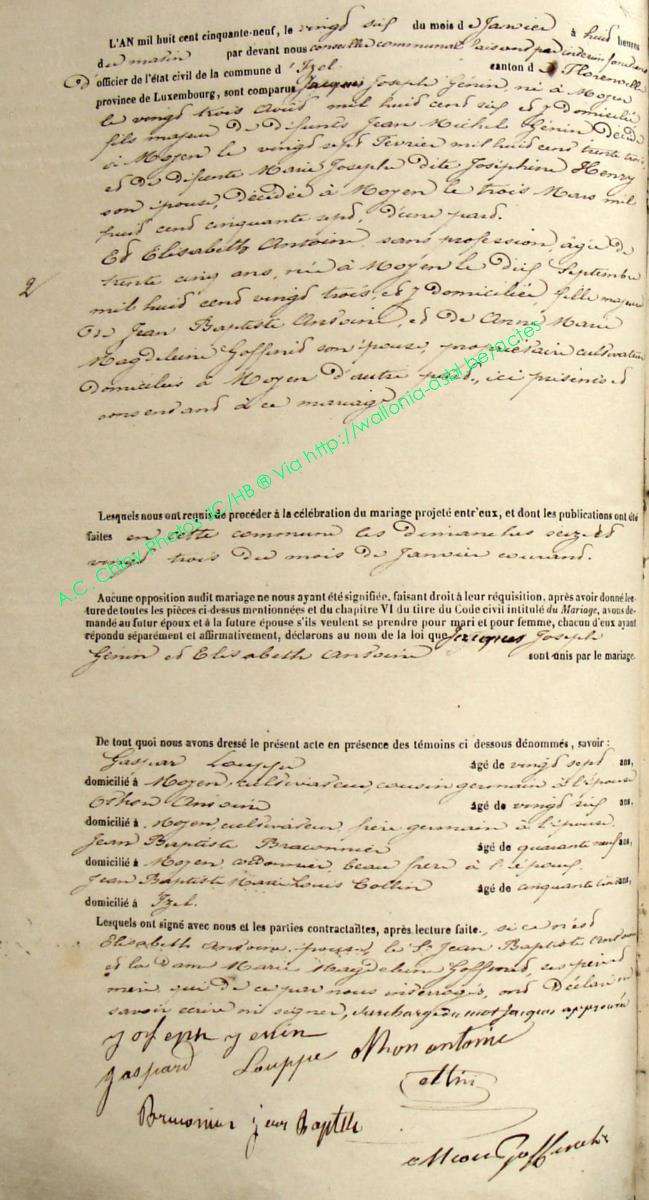 L'AN mil huit cent cinquante-neuf, le vingt six du mois de Janvier à huit heures
du matin par devant nous conseiller communal faisant par interim fonctions
d'officier de l'état civil de la commune d'Izel canton de Florenville
province de Luxembourg, sont comparus Jacques Joseph Génin né à Moyen
le vingt trois Août mil huit cent six et y domicilié
fils majeur de difunts Jean Michel Génin décédé
à Moyen le vingt sept Fevrier mil huit cent trente trois
et de difunte Marie Josephe dite Josephine Henry
son épouse, décédée à Moyen le trois Mars mil
huit cent cinquante sept, d'une part.
Et Elisabeth Antoine, sans profession, âgée de
2
trente cinq ans, née à Moyen le dix Septembre
mil huit cent vingt trois, et y domiciliée, fille majeure
de Jean Baptiste Antoine, et de Anne Marie
Magdeleine Goffinet son épouse, propriétaire cultivateur
domiciliés à Moyen d'autre part, ici présents et
consentant à ce mariage
A.C. Chiny Photos JC/HB ® Via http://wallonia-asbl.be/actes
Lesquels nous ont requis de procéder à la célébration du mariage projeté entr'eux, et dont les publications ont été
faites en cette commune les dimanches seize et
vingt trois du mois de Janvier courant.
Aucune opposition audit mariage ne nous ayant été signifiée, faisant droit à leur réquisition, après avoir donné lec-
ture de toutes les pièces ci-dessus mentionnées et du chapitre VI du titre du Code civil intitulé du Mariage, avons de-
mandé au futur époux et à la future épouse s'ils veulent se prendre pour mari et pour femme, chacun d'eux ayant
répondu séparément et affirmativement, déclarons au nom de la loi que Jacques Joseph
Génin et Elisabeth Antoine sont unis par le mariage.
De tout quoi nous avons dressé le présent acte en présence des témoins ci dessous dénommés, savoir :
Gaspar Louppe âgé de vingt sept ans,
domicilié à Moyen, cultivateur, cousin germain à l'épouse
Othon Antoine âgé de vingt six ans,
domicilié à Moyen, cultivateur, frère germain à l'épouse.
Jean Baptiste Braconnier âgé de quarante neuf ans,
domicilié à Moyen cordonnier, beau frère à l'époux.
Jean Baptiste Marie Louis Collin âgé de cinquante cinq ans,
domicilié à Izel.
Lesquels ont signé avec nous et les parties contractantes, après lecture faite, si ce n'est
Elisabeth Antoine épouse, le Sr Jean Baptiste Antoine
et la Dame Marie Magdeleine Goffinet, ses père et
mère, qui de ce par nous interrogés, ont déclaré ne
savoir écrire ni signer, surcharge du mot Jacques approuvée
Joseph Jenin
Gaspard Louppe Othon antoine
Collin
Braconier jean Baptiste